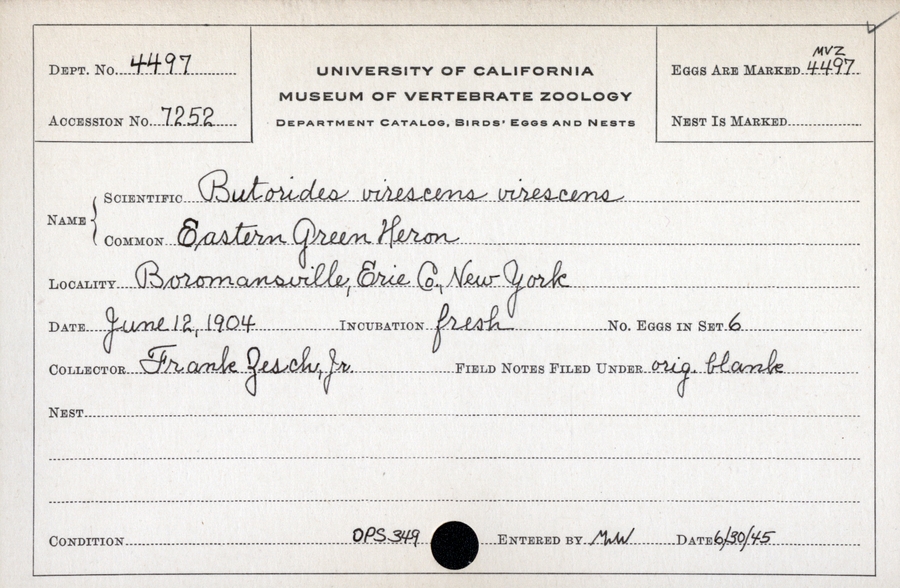 Dept. No. 4497
Accession No. 7252
University of California
Museum of Vertebrate Zoology
Department Catalog, Birds' Eggs and Nests
MVZ
Eggs Are Marked 4497
Nest Is Marked
Name
Scientific Butorides virescens virescens
Common Eastern Green Heron
Locality Boromansville, Erie Co., New York
Date June 12, 1904 Incubation fresh No. Eggs in Set 6
Collector Frank Zesch, Jr. Field Notes Filed Under orig. blank
Nest
Condition OPS 349 Entered by MW Date 6/30/45